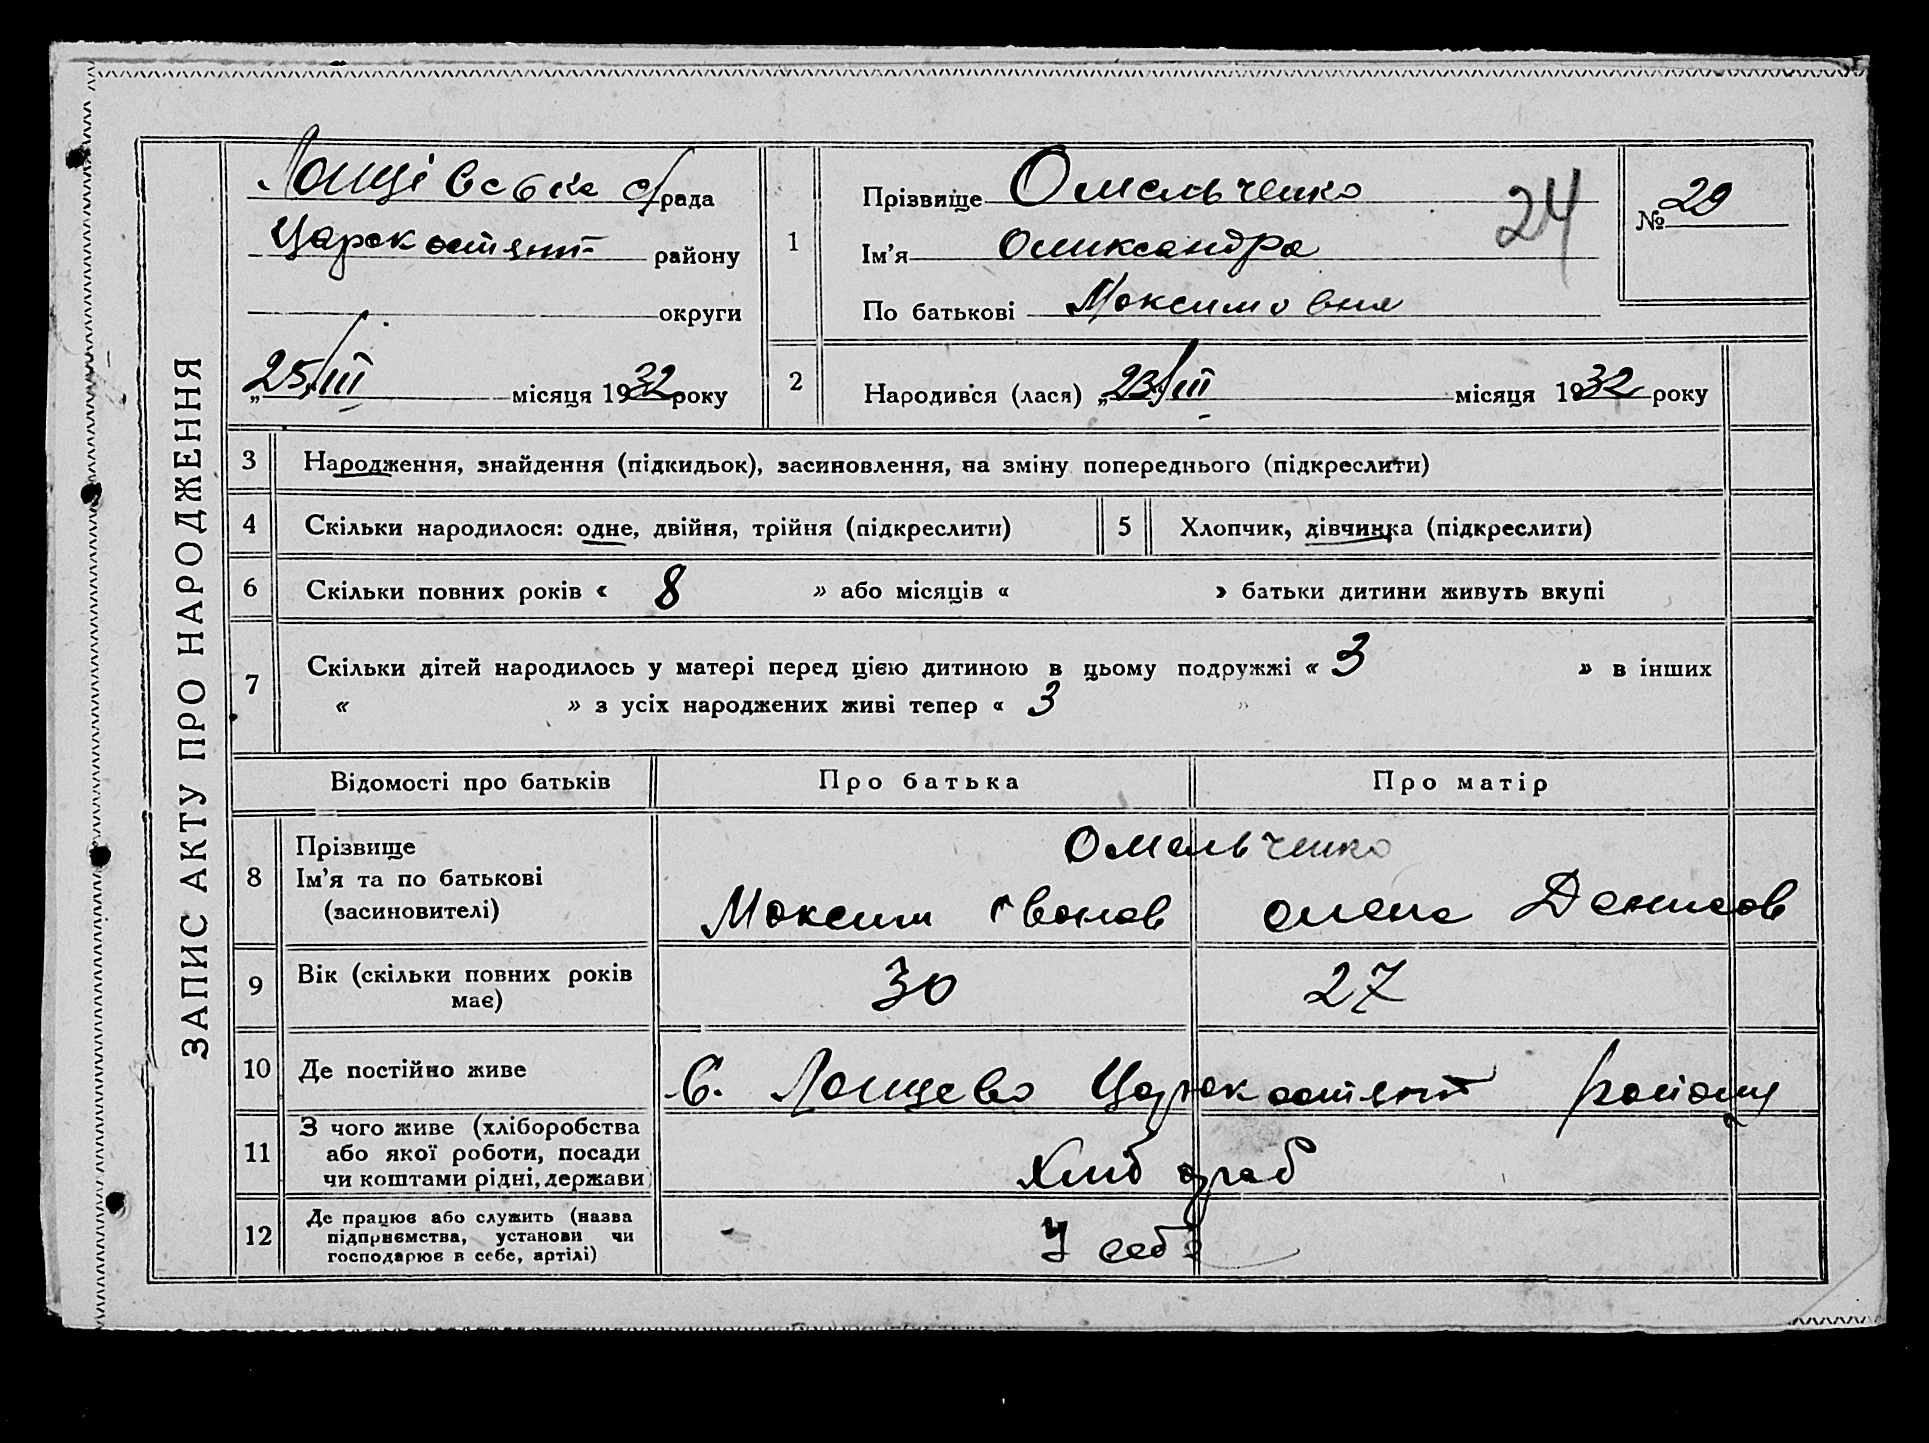 ЗАПИС АКТУ ПРО НАРОДЖЕННЯ
Лощівська с/рада
Царекостянт- району
округи
„25/III місяця 1932 року
1
Прізвище Омельченко
Ім'я Олександра
По батькові Максимовна
24
№ 29
2
Народився (лася) „23/III місяця 1932 року
3 Народження, знайдення (підкидьок), засиновлення, на зміну попереднього (підкреслити)
4 Скільки народилося: одне, двійня, трійня (підкреслити) 5 Хлопчик, дівчинка (підкреслити)
6 Скільки повних років « 8 » або місяців « » батьки дитини живуть вкупі
7 Скільки дітей народилось у матері перед цією дитиною в цьому подружжі « 3 » в інших
« » з усіх народжених живі тепер « 3 »
Відомості про батьків Про батька Про матір
8 Прізвище
Ім'я та по батькові
(засиновителі)
Омельченко
Максим Іванов Олена Денисов
9 Вік (скільки повних років
має)
30 27
10 Де постійно живе С. Лощево Царекостянт району
11 З чого живе (хліборобства
або якої роботи, посади
чи коштами рідні, держави)
Хлібороб
12 Де працює або служить (назва
підприємства, установи чи
господарює в себе, артілі)
У себе